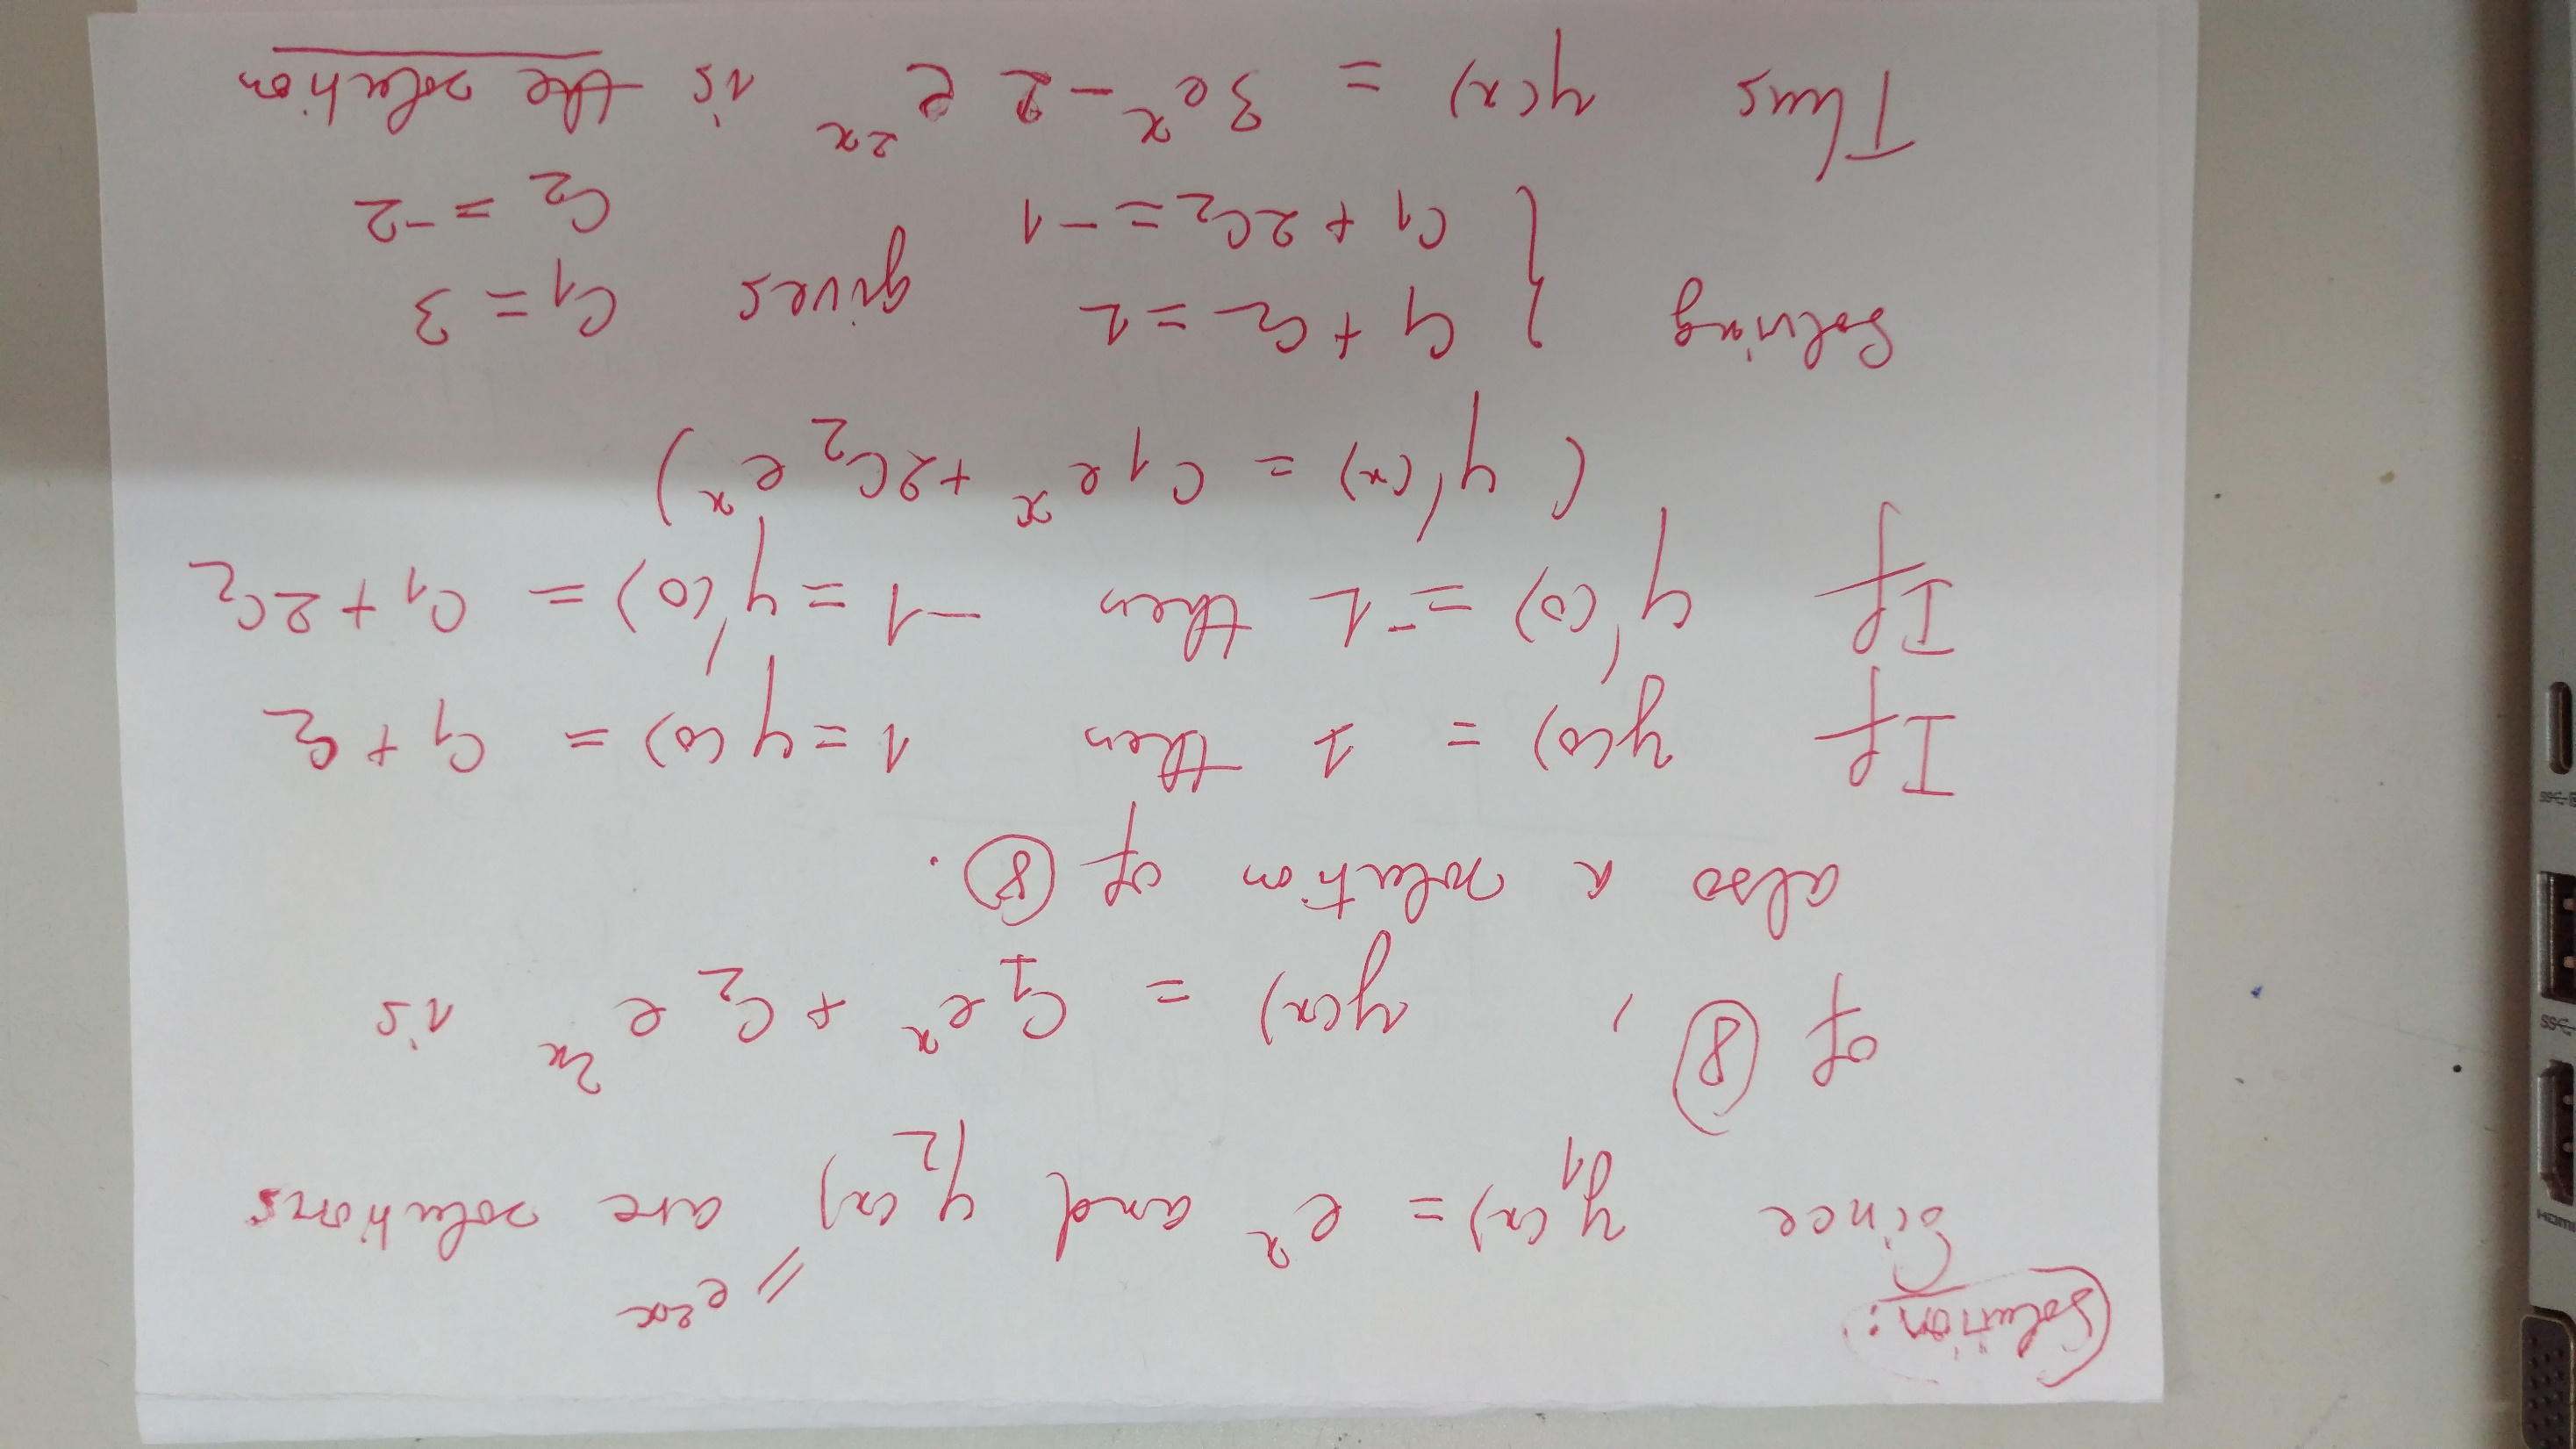 Solution:
Since y₁(x) = eˣ and y₂(x) = e²ˣ are solutions
of ⑧, y(x) = C₁eˣ + C₂e²ˣ is
also a solution of ⑧.
If y(0) = 1 then 1 = y(0) = C₁ + C₂
If y'(0) = -1 then -1 = y'(0) = C₁ + 2C₂
(y'(x) = C₁eˣ + 2C₂eˣ)
Solving { C₁ + C₂ = 1 gives C₁ = 3
C₁ + 2C₂ = -1 C₂ = -2
Thus y(x) = 3eˣ - 2e²ˣ is the solution
HDMI
SS
SS